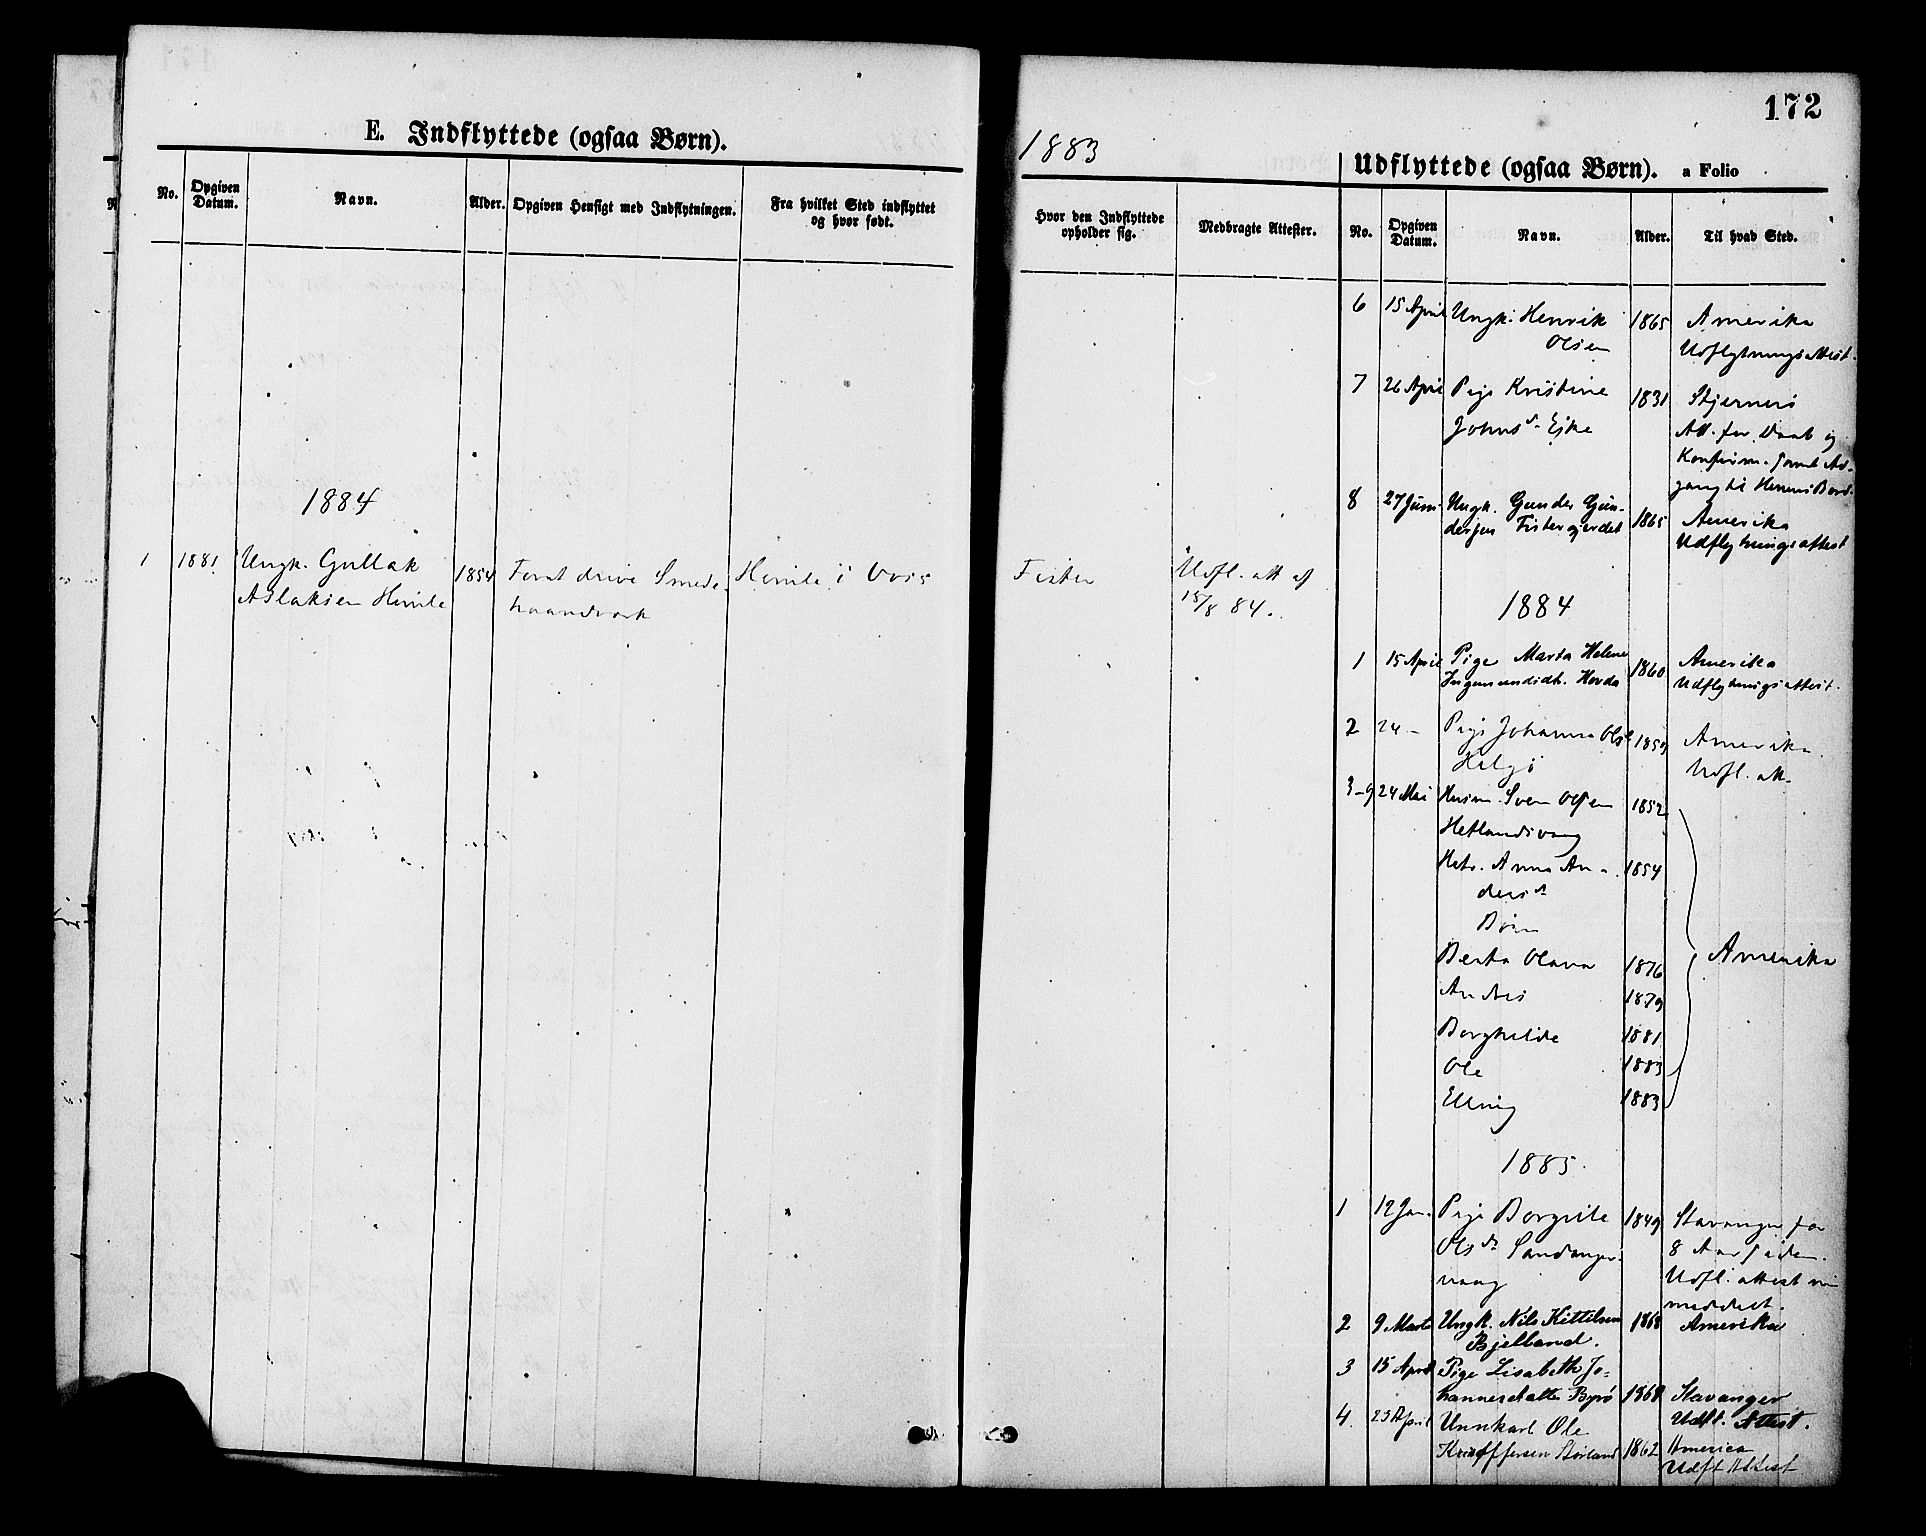 E. Indflyttede (ogsaa Børn).
No.
Opgiven
Datum.
Navn.
Alder.
Opgiven Hensigt med Indflytningen.
Fra hvilket Sted indflyttet
og hvor født.
1884
1 1881 Ungk. Gullak 1854 Smede- i Fister Udfl. att af
Aslaksen haandverk 18/8 84.
172
1883
Udflyttede (ogsaa Børn). a Folio
Hvor den Indflyttede
opholder sig.
Medbragte Attester.
No.
Opgiven
Datum.
Navn.
Alder.
Til hvad Sted.
6 15 April Ungk. Henrik 1865 Amerika
Olsen Udflytningsattest.
7 26 April Pige Kristine 1831 Stjernerö
Johnsd. Eike Att. for Daab og
Konfirm. samt Ad-
gang til Herrens Bord.
8 27 Juni Ungk. Gunder Gun- 1865 Amerika
dersen Fistergjerdet Udflytningsattest
1884
1 15 April Pige Marta Helene 1860 Amerika
Ingemundsdt. Hovda Udflytningsattest.
2 24 - Pige Johanna Olsd. 1859 Amerika
Helgö Udfl. att.
3-9 24 Mai Husm. Sven Olsen 1852
Hetlandsvaag
Hstr. Anna An- 1854
dersd.
Børn
Berta Olava 1876 Amerika
Andres 1879
Borghilde 1881
Ole 1883
Elling 1883
1885.
1 12 Jan. Pige Borgille 1849 Stavanger for
Olsd. Sandanger- 8 Aar siden.
vaag Udfl. attest
meddelt.
2 9 Marts Ungk. Nils Kittilsen 1868 Amerika
Bjelland.
3 15 April Pige Lisabeth Jo-
hannesdatter Byrö 1868 Stavanger
4. 23 April Unnkarl Ole Udfl. Attest.
Kristoffersen Sørland 1862 America
Udfl Attest